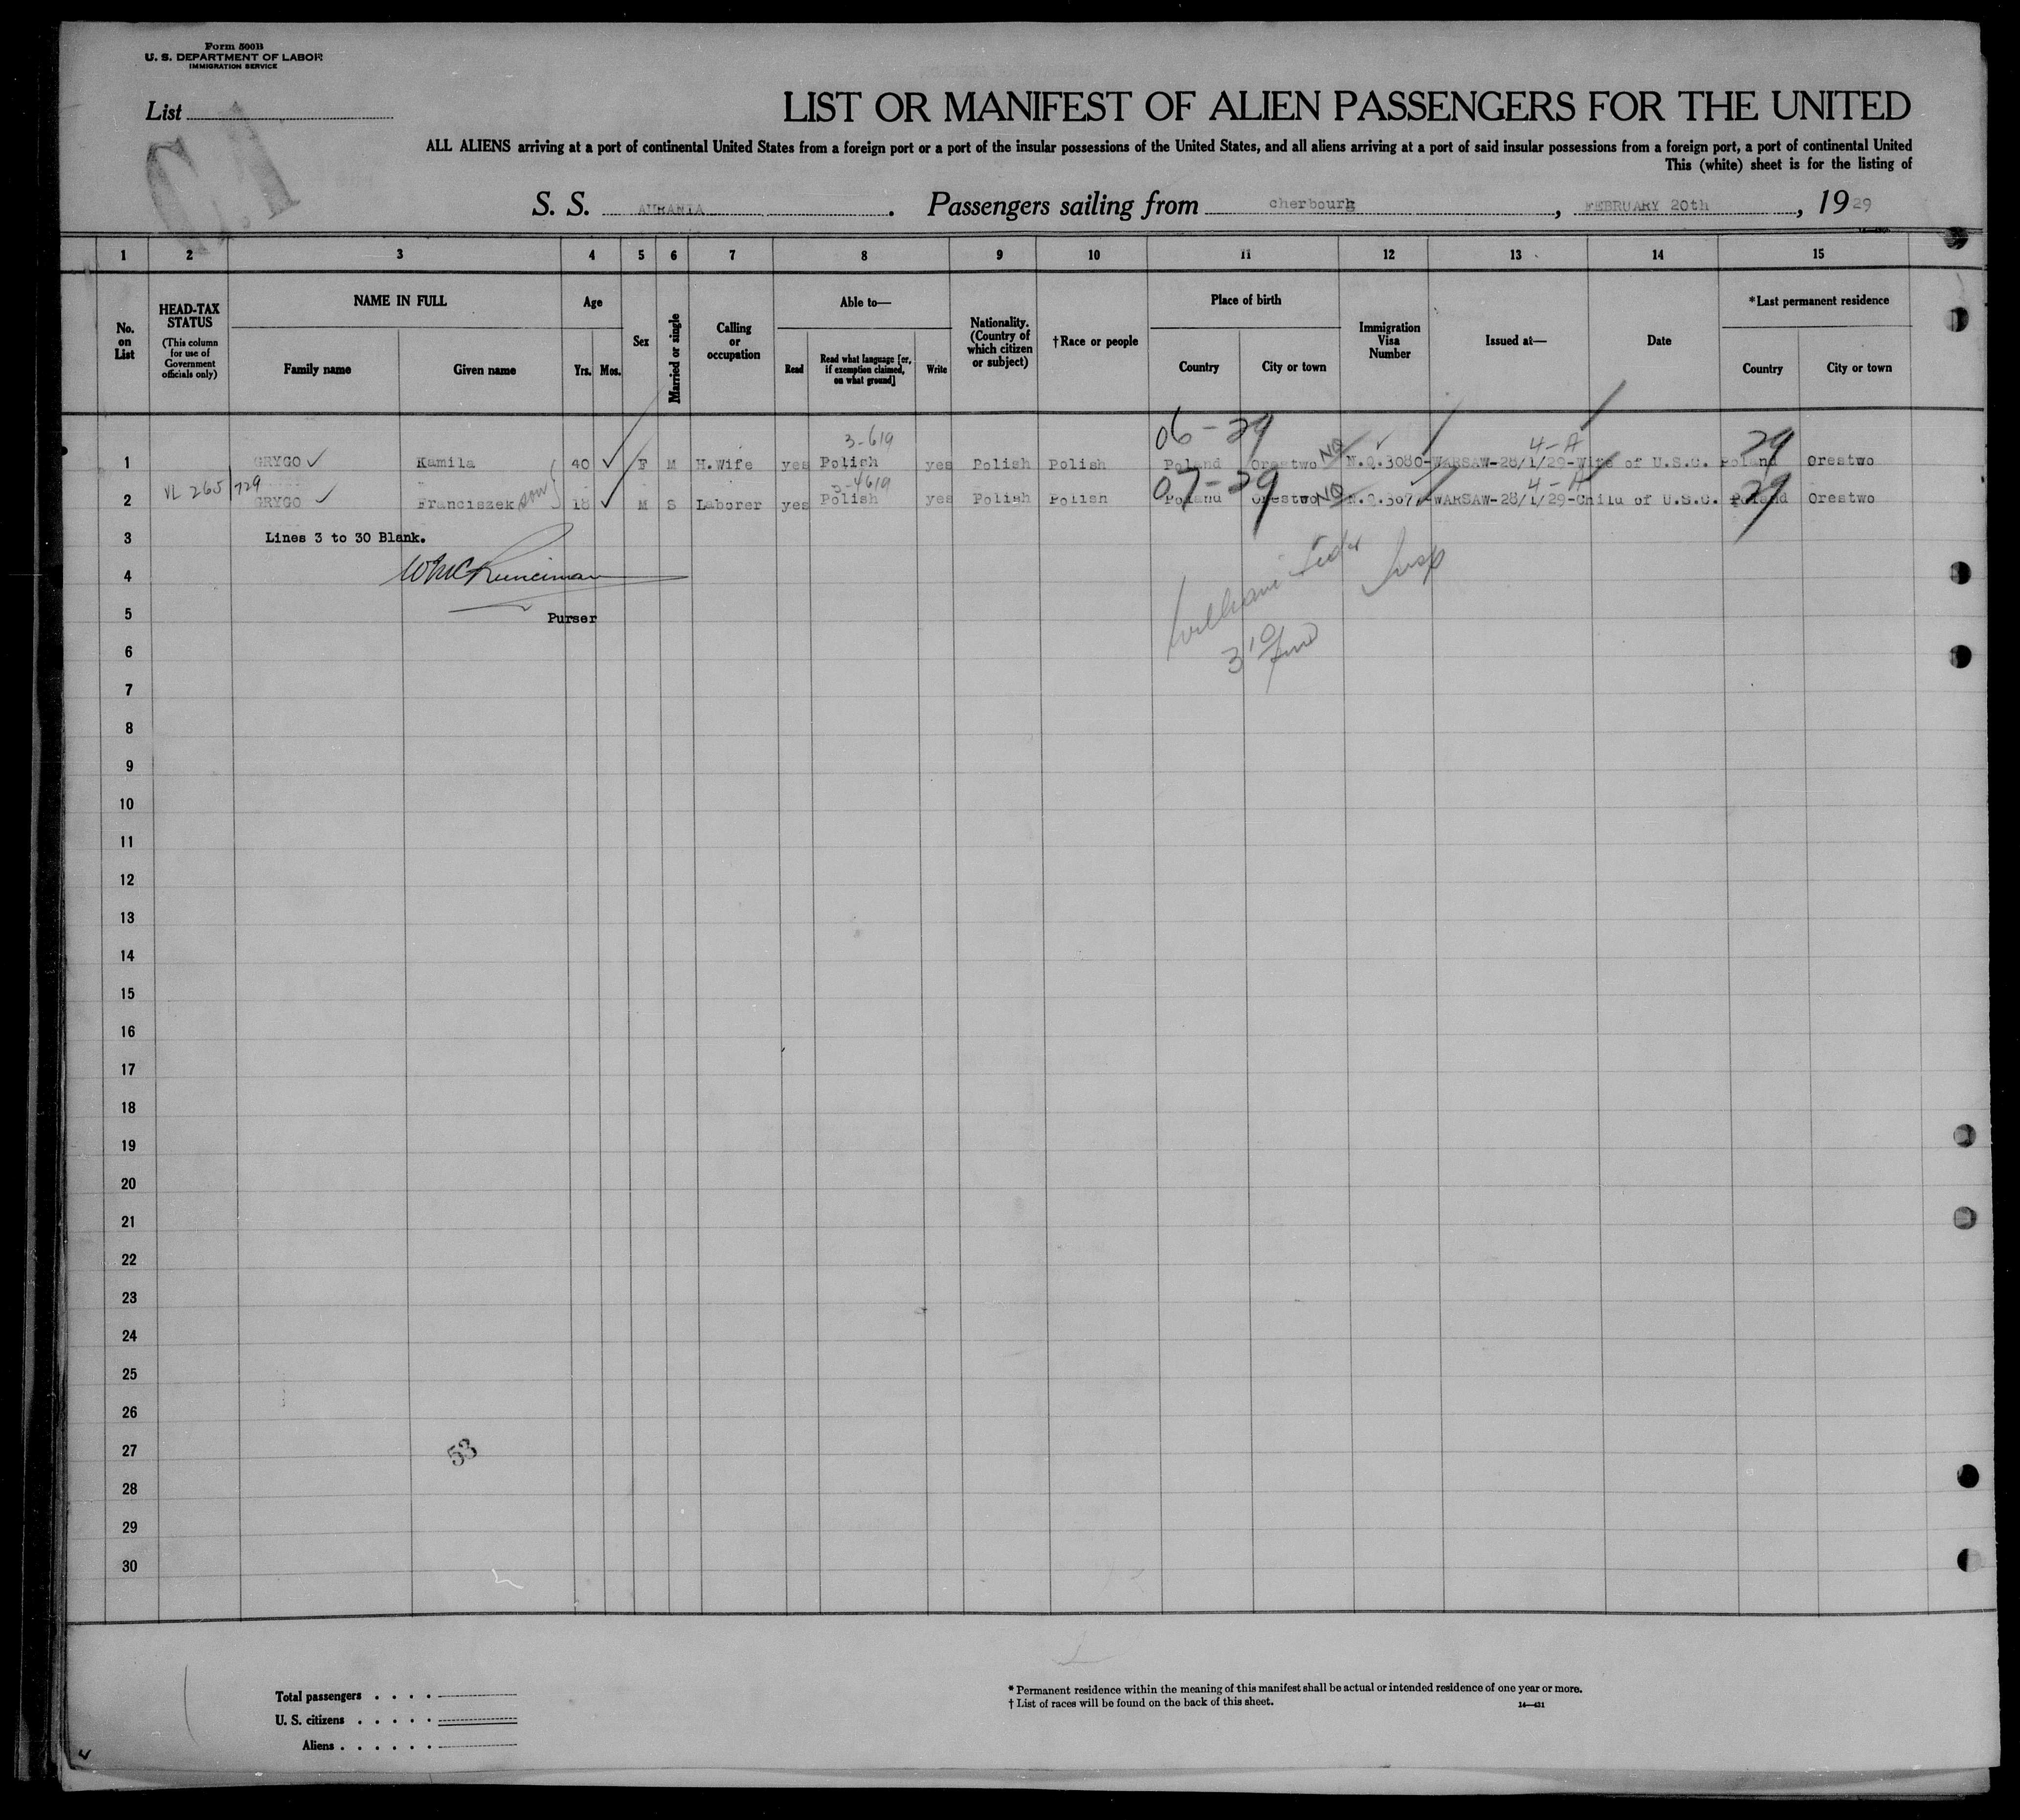 Form 500B
U. S. DEPARTMENT OF LABOR
IMMIGRATION SERVICE
List
LIST OR MANIFEST OF ALIEN PASSENGERS FOR THE UNITED
ALL ALIENS arriving at a port of continental United States from a foreign port or a port of the insular possessions of the United States, and all aliens arriving at a port of said insular possessions from a foreign port, a port of continental United
This (white) sheet is for the listing of
S. S. AURANIA. Passengers sailing from cherbourg, FEBRUARY 20th, 1929
1 2 3 4 5 6 7 8 9 10 11 12 13 14 15
No. on List
HEAD-TAX STATUS (This column for use of Government officials only)
NAME IN FULL Family name Given name
Age Yrs. Mos.
Sex
Married or single
Calling or occupation
Able to— Read Read what language [or, if exemption claimed, on what ground] Write
Nationality. (Country of which citizen or subject)
†Race or people
Place of birth Country City or town
Immigration Visa Number
Issued at—
Date
*Last permanent residence Country City or town
3-619 06-29 4-A 29
1 GRYGO ✓ Kamila 40 ✓ F M H.Wife yes Polish yes Polish Polish Poland Orestwo NQ N.Q.3080-WARSAW-28/1/29-Wife of U.S.C. Poland Orestwo
VL 265/729 3-4619 07-29 4-A 29
2 GRYGO ✓ Franciszek son 18 ✓ M S Laborer yes Polish yes Polish Polish Poland Orestwo NQ WARSAW-28/1/29-Child of U.S.C. Poland Orestwo
3 Lines 3 to 30 Blank.
4
5 Purser
6
7
8
9
10
11
12
13
14
15
16
17
18
19
20
21
22
23
24
25
26
27 53
28
29
30
Total passengers
U. S. citizens
Aliens
* Permanent residence within the meaning of this manifest shall be actual or intended residence of one year or more.
† List of races will be found on the back of this sheet. 14—431